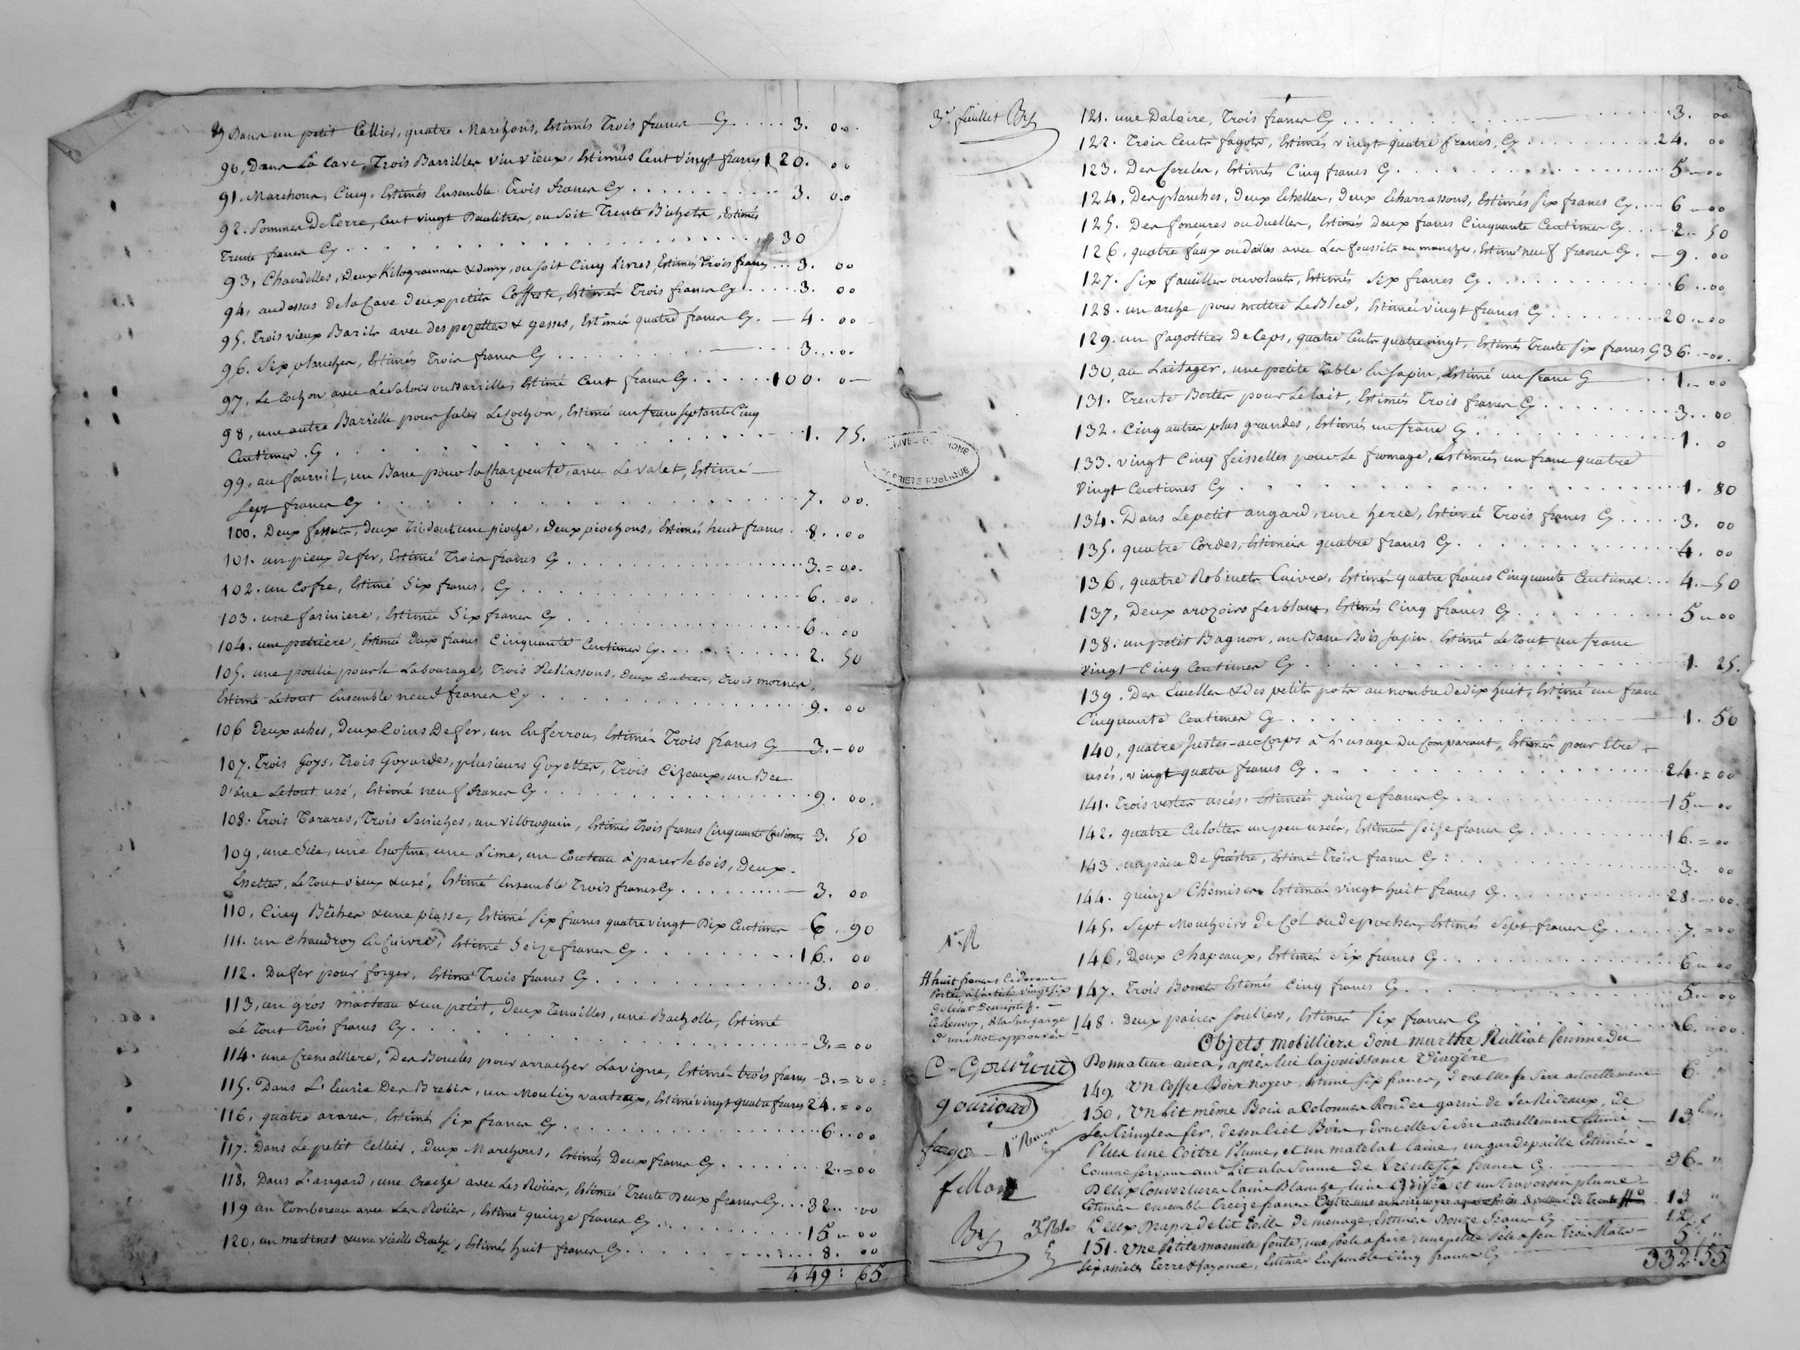 89 Dans un petit Cellier, quatre Marchons, Estimés Trois francs Cy 3. 00
90, Dans La Cave, Trois Barrilles vin vieux, Estimés Cent vingt francs 120. 00
91. Marchons, Cinq, Estimés Ensemble Trois francs Cy 3. 00
92. Pommes De Terre, Cent vingt Doulitres, ou soit Trente Bichets, Estimés
Trente francs Cy 30
93, Chandelles, Deux Kilogrammes & demy, ou soit Cinq Livres, Estimés Trois francs 3. 00
94, au dessus de la Cave deux petits Coffrets, Estimés Trois francs Cy 3. 00
95. Trois vieux Barils avec des pezottes & gesses, Estimés quatre francs Cy. 4. 00
96. Six planches, Estimés Trois francs Cy 3. 00
97, Le Cochon avec Le Salois ou Barrille, Estimé Cent francs Cy 100. 0
98, une autre Barrille pour saler Le Cochon, Estimée un franc septante Cinq
Centimes. Cy 1. 75.
99, au fournil, un Banc pour la Charpente, avec Le valet, Estimé
Sept francs Cy 7. 00.
100. Deux fessous, deux Tridents une pioche, deux piochons, Estimés huit francs 8. 00
101. un pieux de fer, Estimé Trois francs Cy 3.=00.
102. un Cofre, Estimé Six francs, Cy 6. 00
103. une fariniere, Estimée Six francs Cy 6. 00
104. une petriere, Estimée deux francs Cinquante Centimes Cy 2. 50
105. une poulie pour le Labourage, Trois
Estimé Le tout Ensemble neuf francs Cy 9. 00
106 Deux aches, Deux Coins De fer, un Enferrou, Estimés Trois francs Cy 3.-00
107. Trois Goys, Trois Goyardes, plusieurs Goyettes, Trois Cizeaux, un Bec
D'âne Le tout usé, Estimé neuf francs Cy 9. 00.
108. Trois Tarares, Trois un vilbroquin, Estimés Trois francs Cinquante Centimes 3. 50
109, une Scie, une une Lime, un Couteau à parer le bois, Deux
Essettes, Le Tout vieux & usé, Estimé Ensemble Trois francs Cy 3. 00
110, Cinq Bêches & une piasse, Estimé Six francs quatre vingt Dix Centimes 6. 90
111. un Chaudron En Cuivre, Estimé Seize francs Cy 16. 00
112. Du fer pour forger, Estimé Trois francs Cy 3. 00.
113, un gros marteau & un petit, Deux Tenailles, une Bacholle, Estimé
Le Tout Trois francs Cy. 3.=00
114. une Cremalliere, Des Boucles pour arracher La vigne, Estimés trois francs 3.=00
115. Dans L'Ecurie Des Brebis, un Moulin vanteaux, Estimé vingt quatre francs 24.=00
116, quatre araires, Estimés Six francs Cy 6. 00
117. Dans Le petit Cellier, deux Marchons, Estimés Deux francs Cy 2.=00
118. Dans L'angard, une Crache avec Les Roües, Estimée Trente Deux francs Cy 32. 00
119 un Tombereau avec Les Roües, Estimé quinze francs Cy 15. 00
120, un martinet & une vieille Crache, Estimés huit francs Cy. 8. 00
449: 65
3e. feuillet
121. une Daloire, Trois francs Cy 3. 00
122. Trois Cents fagots, Estimés vingt quatre francs, Cy 24. 00
123. Des Cercles, Estimés Cinq francs Cy 5-00
124, Des planches, Deux Echelles, Deux Echarrassons, Estimés Six francs Cy. 6-00
125. Des fonçures ou duelles, Estimés Deux francs Cinquante Centimes Cy. 2.-50
126, quatre faux ou dailles avec Les foussils ou manches, Estimé neuf francs Cy. 9. 00
127. Six faucilles ou volants, Estimés Six francs Cy 6. 00
128. un arche pour mettre Le Bled, Estimée vingt francs Cy 20.-00
129. un fagottier De Ceps, quatre Cents quatre vingt, Estimés Trente Six francs Cy 36.-00.
130, au Laitager, une petite Table En Sapin, Estimé un franc Cy 1.-00
131. Trente Bertes pour Le lait, Estimés Trois francs Cy 3. 00
132. Cinq autres plus grandes, Estimés un franc Cy 1. 0
133. vingt Cinq feisselles pour Le fromage, Estimées un franc quatre
vingt Centimes Cy 1. 80
134. Dans Le petit angard, une herce, Estimée Trois francs Cy 3. 00
135. quatre Cordes, Estimées quatre francs Cy 4. 00
136, quatre Robinets Cuivre, Estimés quatre francs Cinquante Centimes 4.-50
137, Deux arozoirs ferblanc, Estimés Cinq francs Cy 5-00
138. un petit Bagnon, un Banc Bois Sapin. Estimé Le Tout un franc
vingt Cinq Centimes Cy 1. 25.
139. Des Ecuelles & des petits pots au nombre de dix huit, Estimé un franc
Cinquante Centimes Cy 1. 50
140, quatre Justes-au-Corps à L'usage Du Comparant, Estimés pour Etre
usés, vingt quatre francs Cy 24.=00
141. Trois vestes usées, Estimées, quinze francs Cy 15.-00
142. quatre Culottes un peu usées, Estimées Seize francs Cy 16.=00
143. un paire De Guêtre, Estimé Trois francs Cy: 3. 00
144. quinze Chemises Estimées vingt huit francs Cy 28.-00.
145. Sept Mouchoirs de Col ou de poches, Estimés Sept francs Cy 7.=00
146, Deux Chapeaux, Estimés Six francs Cy 6=00
147. Trois Bonets Estimés Cinq francs Cy 5.-00
148. Deux paires Souliers, Estimés Six francs Cy 6.-00.
Objets mobilliers Dont marthe Rulliat femme du
Donnateur aura, après lui la jouissance Viagère
149. Un Coffre Bois noyer, estimé six francs, dont elle se sert actuellement 6 "
150, Un Lit même Bois a Colonnes Rondes garni de Ses Rideaux, de
Ses Tringles fer, de son Ciel Bois, dont elle se sert actuellement Estimé 13f "
Plus une Coitre Plume, et un matelat laine, un gardepaille Estimés
Comme servant au d. Lit a la Somme de Trente Six francs Cy 36 "
Deux Couvertures laine Blanche, une et un traversin plume
Estimés ensemble treize francs 13 "
Deux Draps de lit toile de menage, Estimés Douze francs Cy 12 f
151. Une Petite marmite fonte, une Poele a frire, une petite Pele a feu Trois Plats
Six assietes terre & fayance, Estimés Ensemble Cinq francs Cy 5 "
332f 55
1er. R
# huit francs Ci devant
Porté a l'article vingt six
de l'état descriptif.
d'un mot approuvés
C-Gouriout
gouriout
farge
1er Renvoi
fillon
3e Role
ARCHIVES DU RHONE
PROPRIETE PUBLIQUE